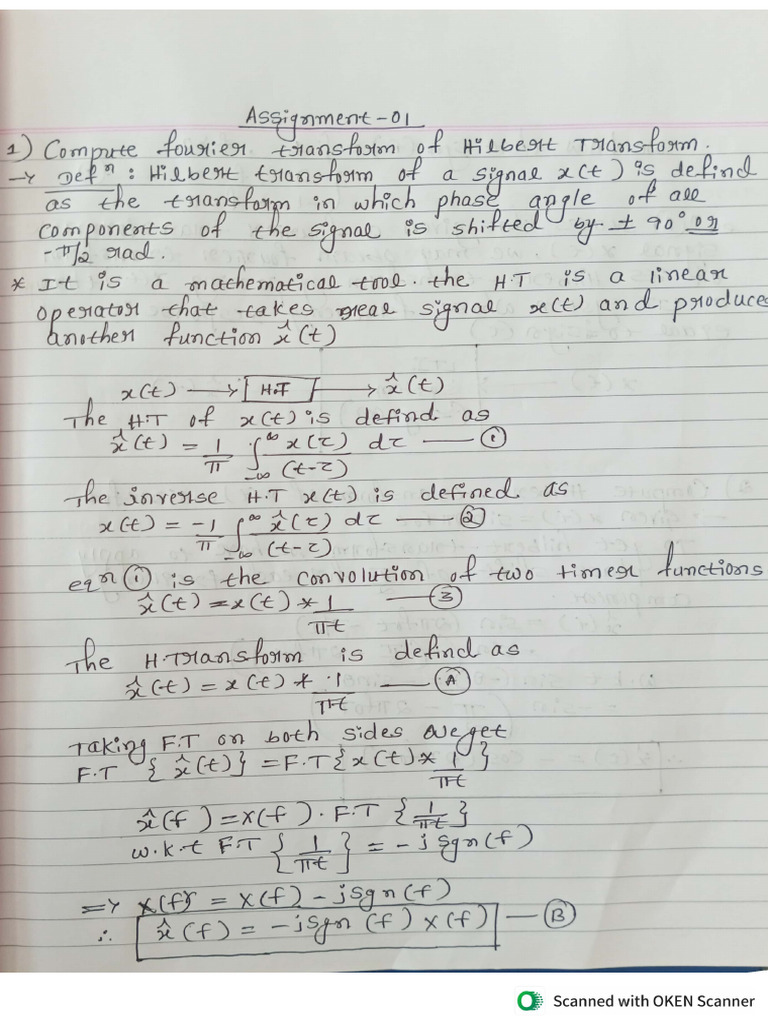 Assignment-01
1) Compute fourier transform of Hilbert Transform.
→ Defⁿ : Hilbert transform of a signal x(t) is defind
as the transform in which phase angle of all
components of the signal is shifted by ± 90° or
-π/2 rad.
* It is a mathematical tool. the H.T is a linear
operator that takes real signal x(t) and produces
another function x̂(t)
x(t) → H.T → x̂(t)
The H.T of x(t) is defind as
x̂(t) = 1/π ∫_{-∞}^{∞} x(τ)/(t-τ) dτ — ①
The inverse H.T x(t) is defined as
x(t) = -1/π ∫_{-∞}^{∞} x̂(τ)/(t-τ) dτ — ②
eqⁿ ① is the convolution of two timer functions
x̂(t) = x(t) * 1/πt — ③
The H.Transform is defind as
x̂(t) = x(t) * 1/πt — Ⓐ
Taking F.T on both sides we get
F.T {x̂(t)} = F.T{x(t) * 1/πt}
x̂(f) = X(f) . F.T {1/πt}
w.k.t F.T {1/πt} = -j sgn(f)
=> X(f) = X(f) - j sgn(f)
∴ x̂(f) = -j sgn (f) X(f) — Ⓑ
Scanned with OKEN Scanner